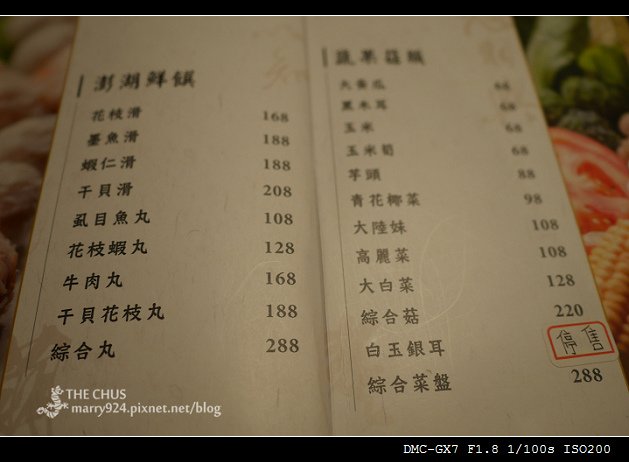 澎湖鮮饌
花枝滑 168
墨魚滑 188
蝦仁滑 188
干貝滑 208
虱目魚丸 108
花枝蝦丸 128
牛肉丸 168
干貝花枝丸 188
綜合丸 288
蔬菓菇類
大黃瓜 68
黑木耳 68
玉米 68
玉米筍 68
芋頭 88
青花椰菜 98
大陸妹 108
高麗菜 108
大白菜 128
綜合菇 220
白玉銀耳 停售
綜合菜盤 288
THE CHUS
marry924.pixnet.net/blog
DMC-GX7 F1.8 1/100s ISO200